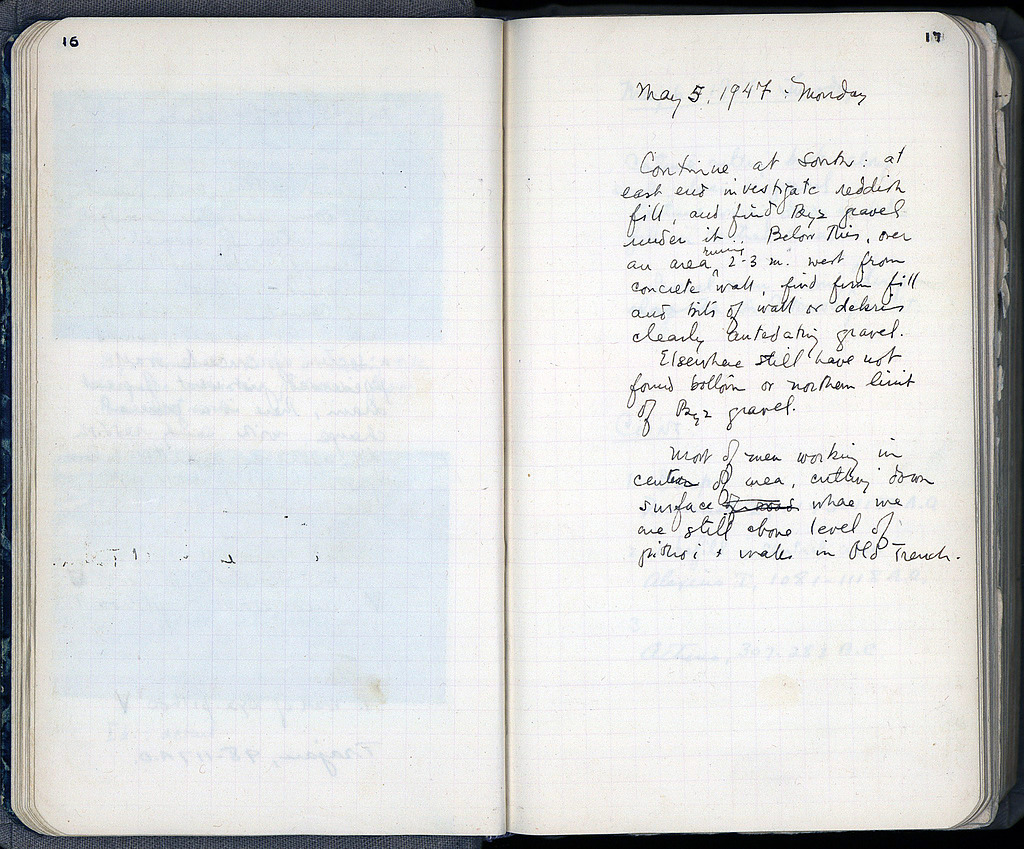 16
17
May 5, 1947 : Monday
Continue at South: at
east end investigate reddish
fill, and find Byz gravel
under it. Below this, over
running
an area 2-3 m. west from
concrete wall, find firm fill
and bits of wall or debris
clearly antedating gravel.
Elsewhere still have not
found bottom or northern limit
of Byz gravel.
Most of men working in
center of area, cutting down
surface of road where we
are still above level of
pithoi + walls in Old Trench.
Alexius I, 1081-1118 A.D.
3
Athens, 307-283 B.C.
Trajan, 98-117 A.D.